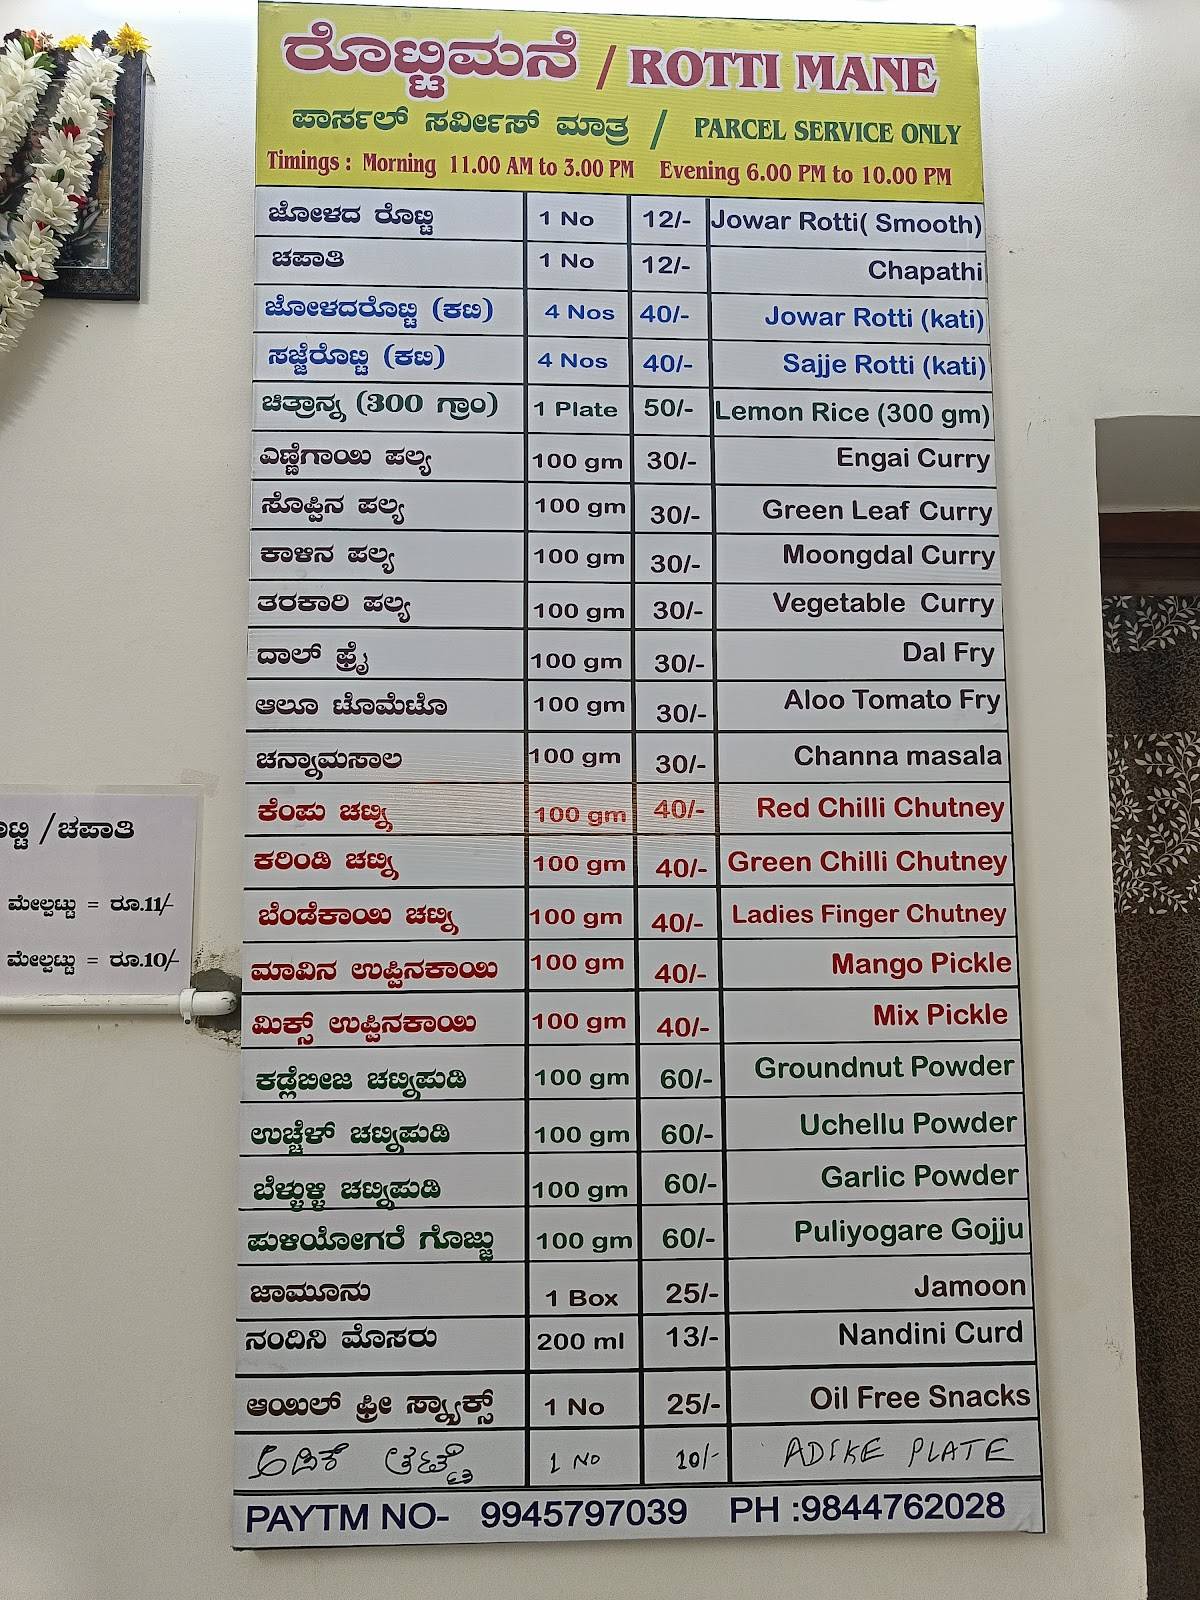 ರೊಟ್ಟಿಮನೆ / ROTTI MANE
ಪಾರ್ಸಲ್ ಸರ್ವೀಸ್ ಮಾತ್ರ / PARCEL SERVICE ONLY
Timings : Morning 11.00 AM to 3.00 PM Evening 6.00 PM to 10.00 PM
ಜೋಳದ ರೊಟ್ಟಿ 1 No 12/- Jowar Rotti( Smooth)
ಚಪಾತಿ 1 No 12/- Chapathi
ಜೋಳದರೊಟ್ಟಿ (ಕಟಿ) 4 Nos 40/- Jowar Rotti (kati)
ಸಜ್ಜೆರೊಟ್ಟಿ (ಕಟಿ) 4 Nos 40/- Sajje Rotti (kati)
ಚಿತ್ರಾನ್ನ (300 ಗ್ರಾಂ) 1 Plate 50/- Lemon Rice (300 gm)
ಎಣ್ಣೆಗಾಯಿ ಪಲ್ಯ 100 gm 30/- Engai Curry
ಸೊಪ್ಪಿನ ಪಲ್ಯ 100 gm 30/- Green Leaf Curry
ಕಾಳಿನ ಪಲ್ಯ 100 gm 30/- Moongdal Curry
ತರಕಾರಿ ಪಲ್ಯ 100 gm 30/- Vegetable Curry
ದಾಲ್ ಫ್ರೈ 100 gm 30/- Dal Fry
ಆಲೂ ಟೊಮೆಟೊ 100 gm 30/- Aloo Tomato Fry
ಚನ್ನಾಮಸಾಲ 100 gm 30/- Channa masala
ಕೆಂಪು ಚಟ್ನಿ 100 gm 40/- Red Chilli Chutney
ಕರಿಂಡಿ ಚಟ್ನಿ 100 gm 40/- Green Chilli Chutney
ಬೆಂಡೆಕಾಯಿ ಚಟ್ನಿ 100 gm 40/- Ladies Finger Chutney
ಮಾವಿನ ಉಪ್ಪಿನಕಾಯಿ 100 gm 40/- Mango Pickle
ಮಿಕ್ಸ್ ಉಪ್ಪಿನಕಾಯಿ 100 gm 40/- Mix Pickle
ಕಡ್ಲೆಬೀಜ ಚಟ್ನಿಪುಡಿ 100 gm 60/- Groundnut Powder
ಉಚ್ಚೆಳ್ ಚಟ್ನಿಪುಡಿ 100 gm 60/- Uchellu Powder
ಬೆಳ್ಳುಳ್ಳಿ ಚಟ್ನಿಪುಡಿ 100 gm 60/- Garlic Powder
ಪುಳಿಯೋಗರೆ ಗೊಜ್ಜು 100 gm 60/- Puliyogare Gojju
ಜಾಮೂನು 1 Box 25/- Jamoon
ನಂದಿನಿ ಮೊಸರು 200 ml 13/- Nandini Curd
ಆಯಿಲ್ ಫ್ರೀ ಸ್ನ್ಯಾಕ್ಸ್ 1 No 25/- Oil Free Snacks
ಅಡಿಕೆ ತಟ್ಟೆ 1 NO 10/- ADIKE PLATE
PAYTM NO- 9945797039 PH :9844762028
/ಚಪಾತಿ
ಮೇಲ್ಪಟ್ಟು = ರೂ.11/-
ಮೇಲ್ಪಟ್ಟು = ರೂ.10/-